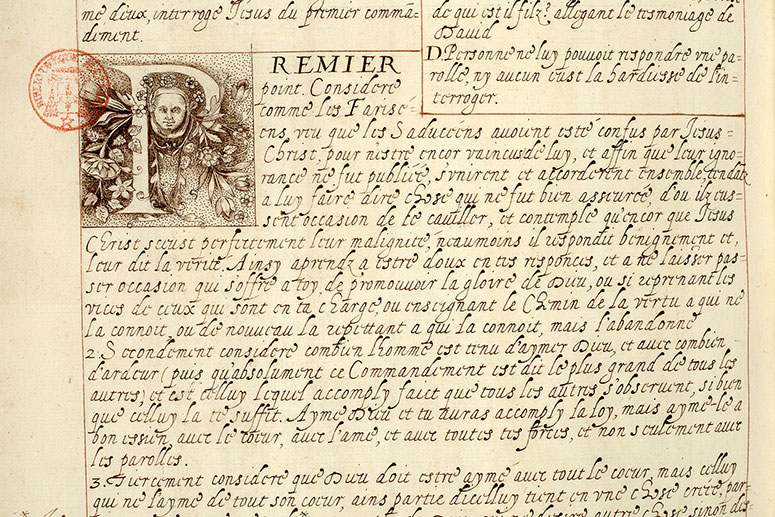 me deux, interroge Jesus du premier comma=
diment.
de qui est il filz? allegant le tesmoniage de
David
D. Personne ne luy pouvoit respondre vne pa=
rolle, ny aucun eust la hardiesse de l'in=
terroger.
PREMIER
point. Considere
comme les Farise=
ens, veu que les Saduceens avoient esté confus par Jesus=
Christ, pour nestre encor vaincus de luy, et affin que leur igno=
rance ne fut publiée, s'unirent et accorderent ensemble, tendatz
a luy faire dire chose qui ne fut bien asseurée, d'ou ilz eus=
sent occasion de le caviller, et contemple qu'encor que Jesus
Christ sceust perfectement leur malignité, neaumoins il respondit benignement et,
leur dit la verité. Ainsy aprendz a estre doux en tes responces, et a ne laisser pas=
ser occasion qui s'offre a toy de promouvoir la gloire de Dieu, ou si reprenant les
vices de ceux qui sont en ta charge, ou enseignant le chemin de la vertu a qui ne
la connoit, ou de nouveau la repettant a qui la connoit, mais l'abandonne
2. Secondement considere combien l'homme est tenu d'aymer Dieu, et avec combien
d'ardeur (puis qu'absolument ce Commandement est dit le plus grand de tous les
autres) et est celluy lequel accomply faict que tous les autres s'observent, si bien
que celluy la te suffit. Ayme Dieu et tu auras accomply la loy, mais ayme-le a
bon essien, avec le coeur, avec l'ame, et avec toutes tes forces, et non seulement avec
les parolles.
3. Tiercement considere que Dieu doit estre aymé avec tout le coeur, mais celluy
qui ne l'ayme de tout son coeur, ains partie d'icelluy tient en vne chose creée, par=
desire autre chose sinon des